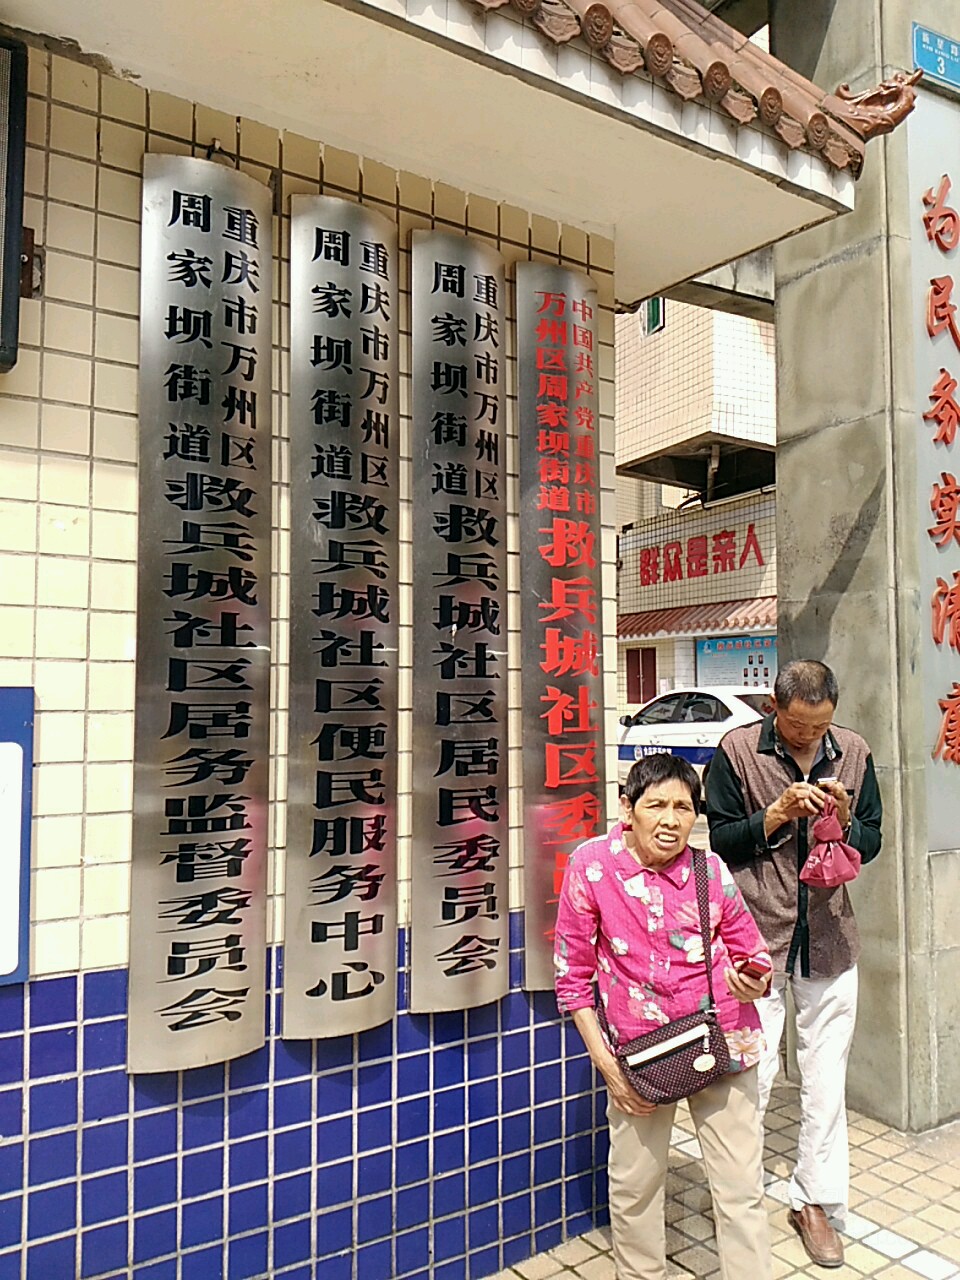 重庆市万州区
周家坝街道
救兵城社区居务监督委员会
重庆市万州区
周家坝街道
救兵城社区便民服务中心
重庆市万州区
周家坝街道
救兵城社区居民委员会
中国共产党重庆市
万州区周家坝街道
救兵城社区委员
群众是亲人
3
为民务实清廉